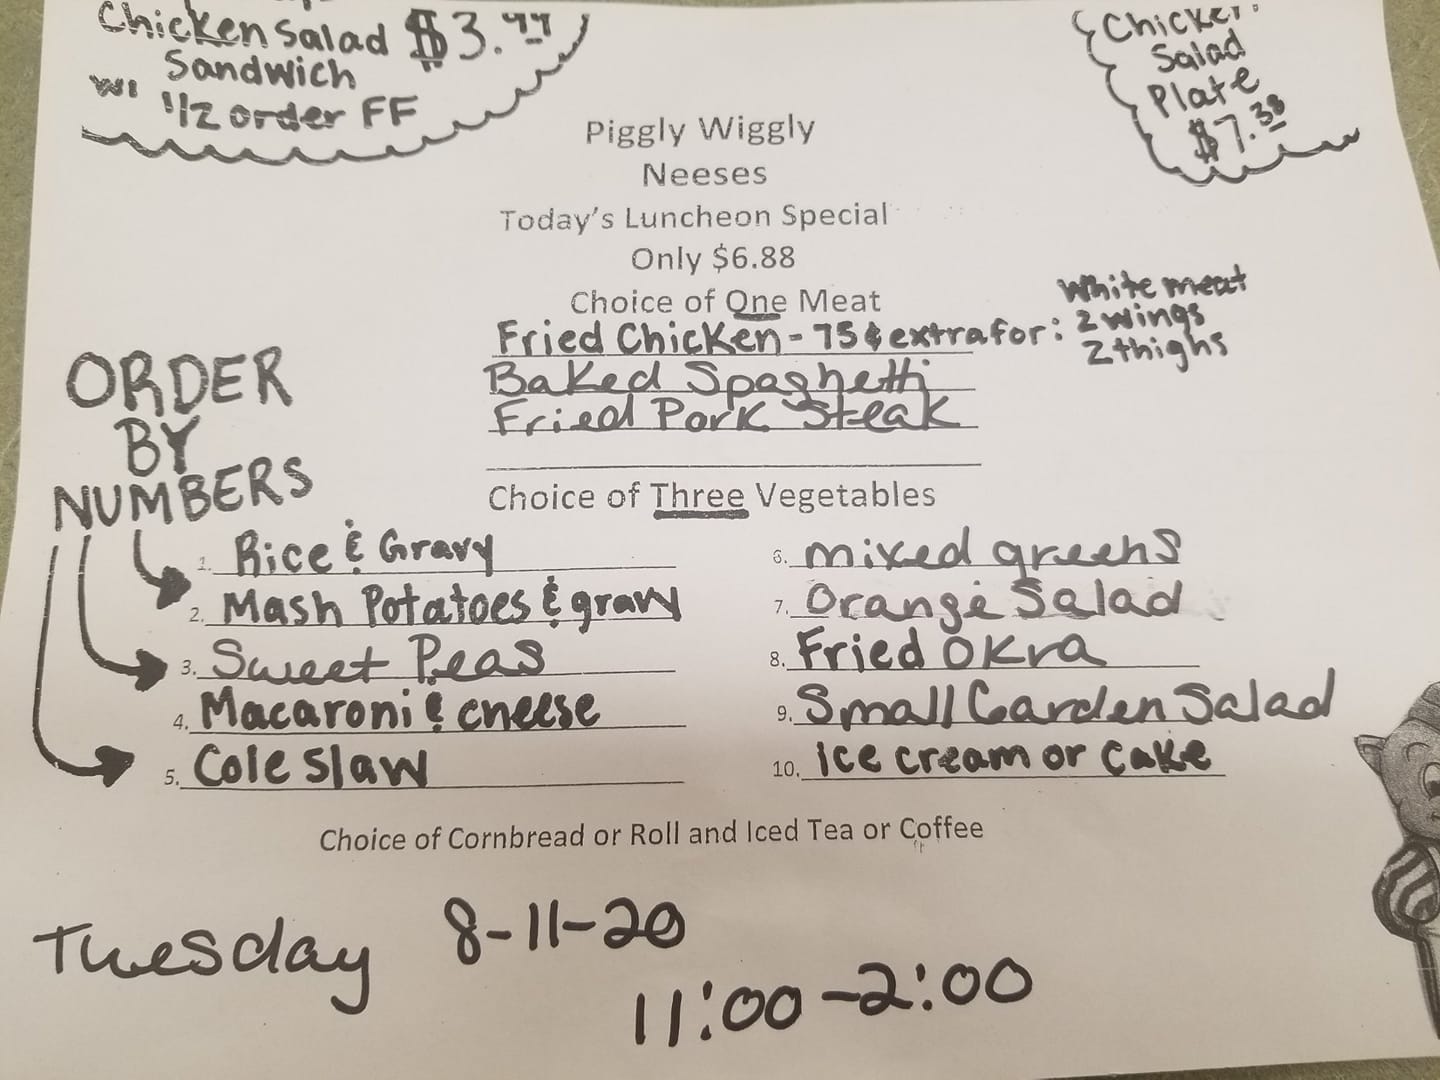 Chicken Salad $3.99
Sandwich
W/ 1/2 order FF
Chicken
Salad
Plate
$7.38
Piggly Wiggly
Neeses
Today's Luncheon Special
Only $6.88
Choice of One Meat
Fried Chicken - 75¢ extra for: White meat
2 wings
2 thighs
Baked Spaghetti
Fried Pork Steak
ORDER
BY
NUMBERS
Choice of Three Vegetables
1. Rice & Gravy
2. Mash Potatoes & gravy
3. Sweet Peas
4. Macaroni & cheese
5. Cole slaw
6. mixed greens
7. Orange Salad
8. Fried Okra
9. Small Garden Salad
10. Ice cream or Cake
Choice of Cornbread or Roll and Iced Tea or Coffee
Tuesday 8-11-20
11:00-2:00